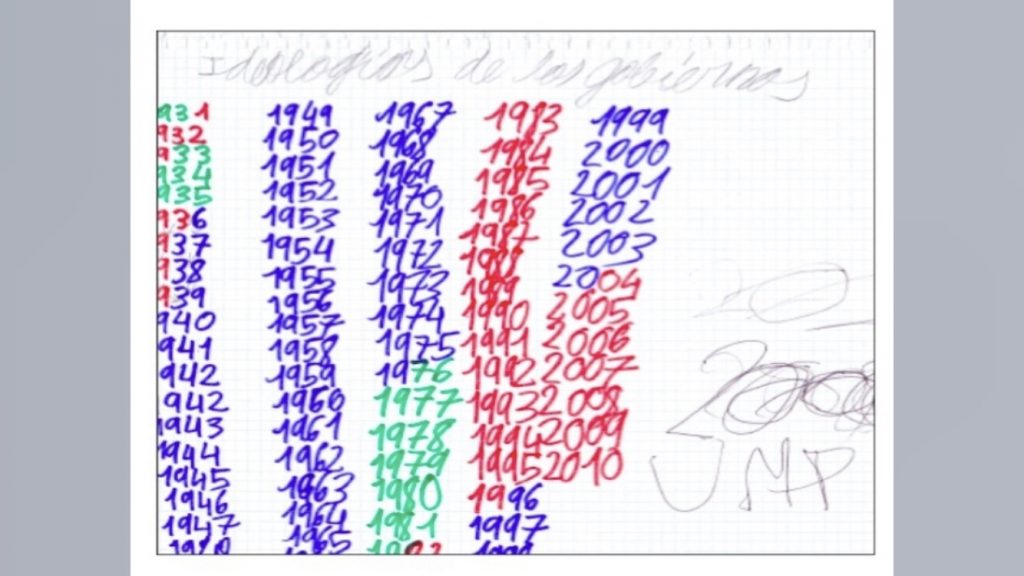 Ideologías de los gobiernos
931
932
933
934
935
936
937
938
939
940
941
942
942
1943
1944
1945
1946
1947
1949
1950
1951
1952
1953
1954
1955
1956
1957
1958
1959
1960
1961
1962
1963
1964
1965
1967
1968
1969
1970
1971
1972
1973
1974
1975
1976
1977
1978
1979
1980
1981
1982
1983
1984
1985
1986
1987
1988
1989
1990
1991
1992
1993
1994
1995
1996
1997
1999
2000
2001
2002
2003
2004
2005
2006
2007
2008
2009
2010
UMP